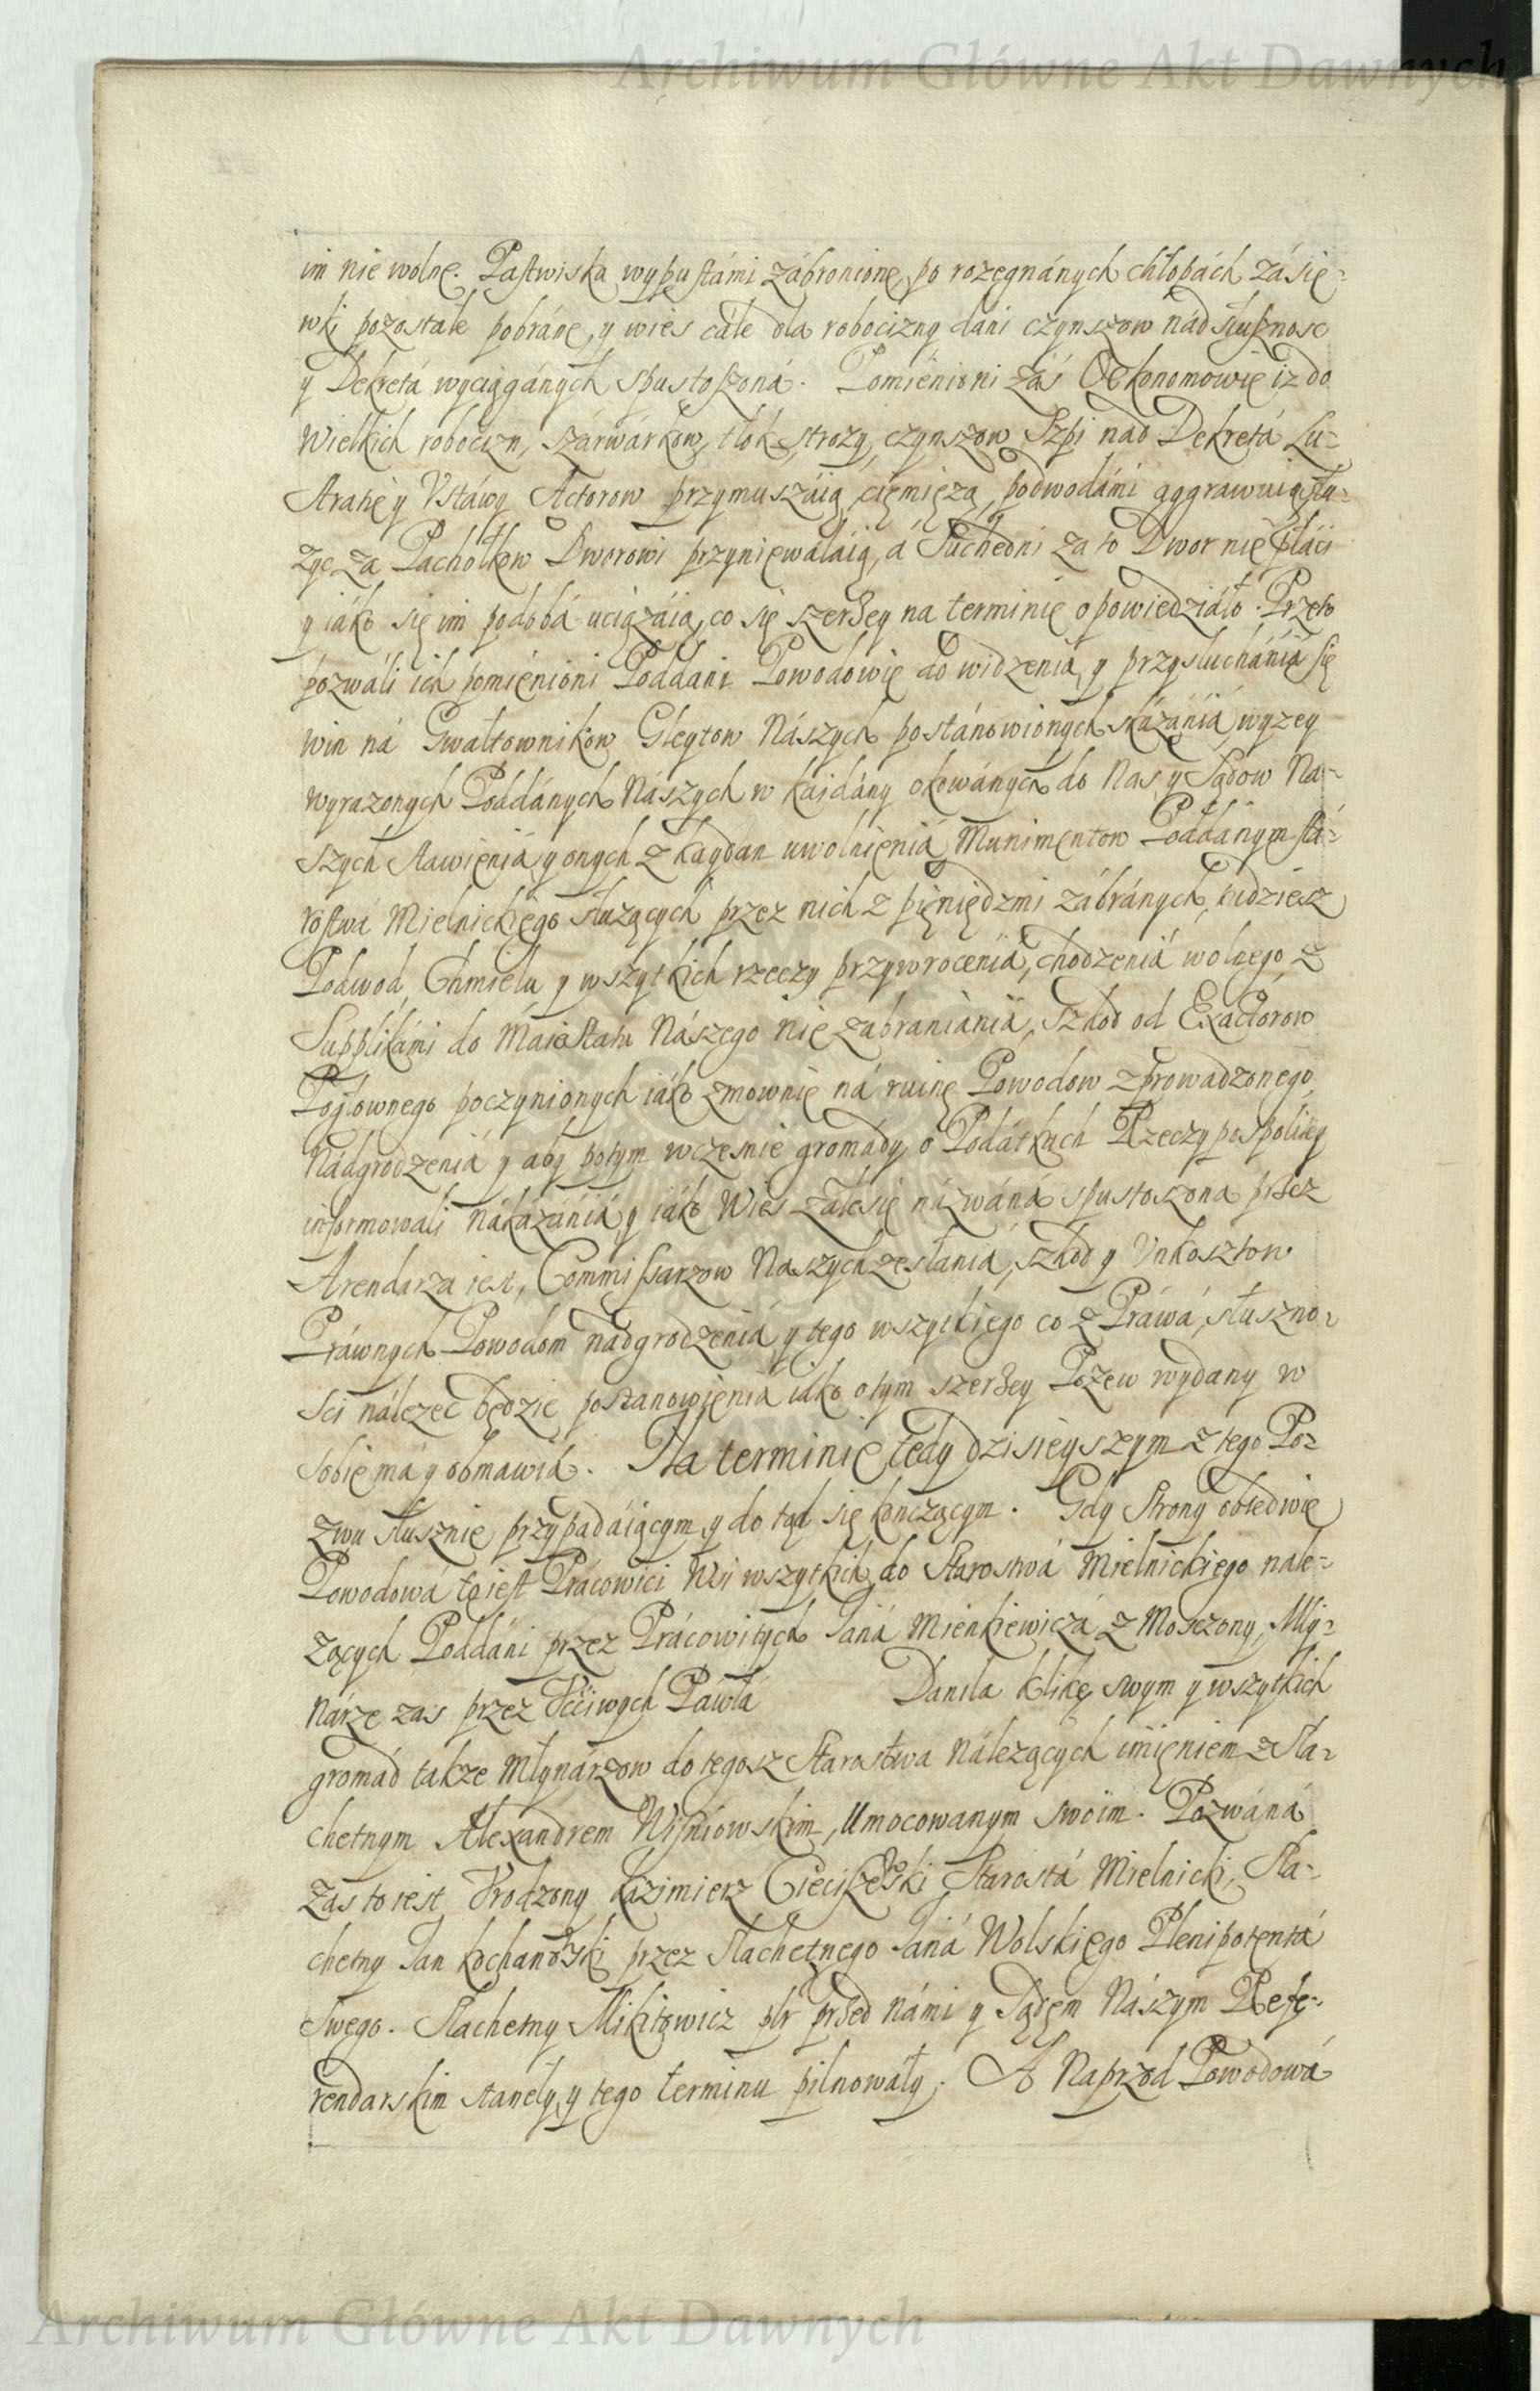 Archiwum Główne Akt Dawnych
im nie wolne. Pastwiska wypustámi zábronione, po rozegnánych chłopách zásię=
wki pozostałe pobráne, y wieś cále dla robocizny dáni czynszow nád słusznosc
y Dekretá wyciągánych spustoszoná. Pomienioni záś Oekonomowie iz do
Wielkich robocizn, szárwárkow, tłok, stroży, czynszow Szpi nad Dekretá Lu=
stratię y Ustáwy Actorow przymuszáią, ciemiężą, podwodámi aggrawuią słu=
zyc za Pachołkow Dworowi przyniewaláią, á Suchedni za to Dwor nie płáci
y iáko się im podobá uciązáią, co się szerzey na terminie opowiedziáło. Przeto
pozwáli ich pomienioni Poddani Powodowie do widzenia y przysłuchánia się
win ná Gwałtownikow Gleytow Nászych postánowionych skázániá wyzey
wyrazonych Poddánych Nászych w kajdány okowánych do Nas y Sądow Na=
szych stawieniá y onych z kaydan uwolnieniá Munimentow Poddánym stá=
rostwá Mielnickiego słuzących przez nich z pieniędzmi zábránych, tudziesz
Podwod, Chmielu y wszytkich rzeczy przywroceniá, chodzeniá wolnego z
Supplikámi do Maiestatu Nászego nie zabrániániá, szkod od Exactorow
Pogłownego poczynionych iáko zmownie ná ruinę Powodow zprowadzonego
Nádgrodzeniá y aby potym wczesnie gromády o Podátkách Rzeczypospolitey
informowali nákázániá y iáko Wieś Zalesie názwáná spustoszona przez
Arendarza iest, Commissarzow Naszych zesłaniá, szkod y Unkosztow
Práwnych Powodom nádgrodzeniá y tego wszytkiego co z Práwá, słuszno=
ści nálezeć będzie postanowieniá iáko o tym szerzey Pozew wydany w
sobie má y obmawiá. Na terminie tedy dzisieyszym z tego Po=
zwu słusznie przypadáiącym y do tąd się konczącym. Gdy Strony obiedwie
Powodowá to iest Prácowici Wsi wszytkich do Starostwá Mielnickiego nale=
zących Poddáni przez Prácowitych Janá Mienkiewiczá z Mosczony, Mły=
nárze zaś przez Uććiwych Páwła Daniła Klikę swym y wszytkich
gromád takze Młynárzow do tegosz Starostwa Nálezących imieniem z Sla=
chetnym Alexandrem Wiśniowskim, Umocowanym swoim. Pozwáná
zaś to iest Urodzony Kazimierz Cieciszewski Starostá Mielnicki, Sla=
chetny Jan Kochanowski przez Slachetnego Janá Wolskiego Plenipotentá
swego. Slachetny Mikitowicz plr przed námi y Sądem Nászym Refe=
rendarskim stanęły y tego terminu pilnowáły. A Naprzod Powodowá
Archiwum Główne Akt Dawnych